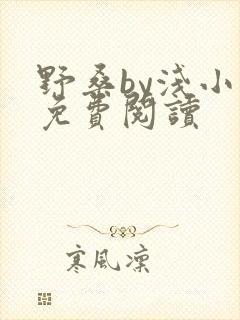 野桑by淺小
免費閱讀
寒風凜